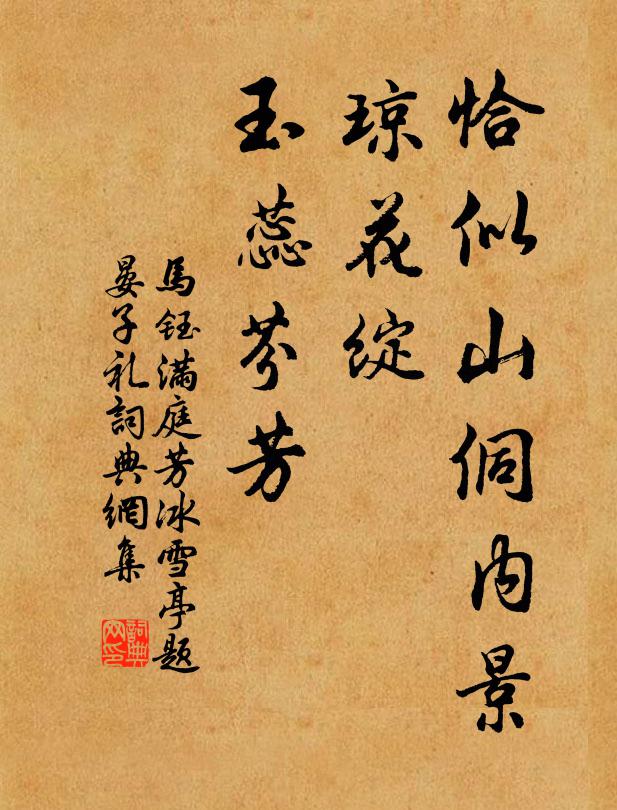 恰似山侗内景
琼花绽
玉蕊芬芳
馬鈺满庭芳冰雪亭题
晏子礼詞典網集
詞典网印